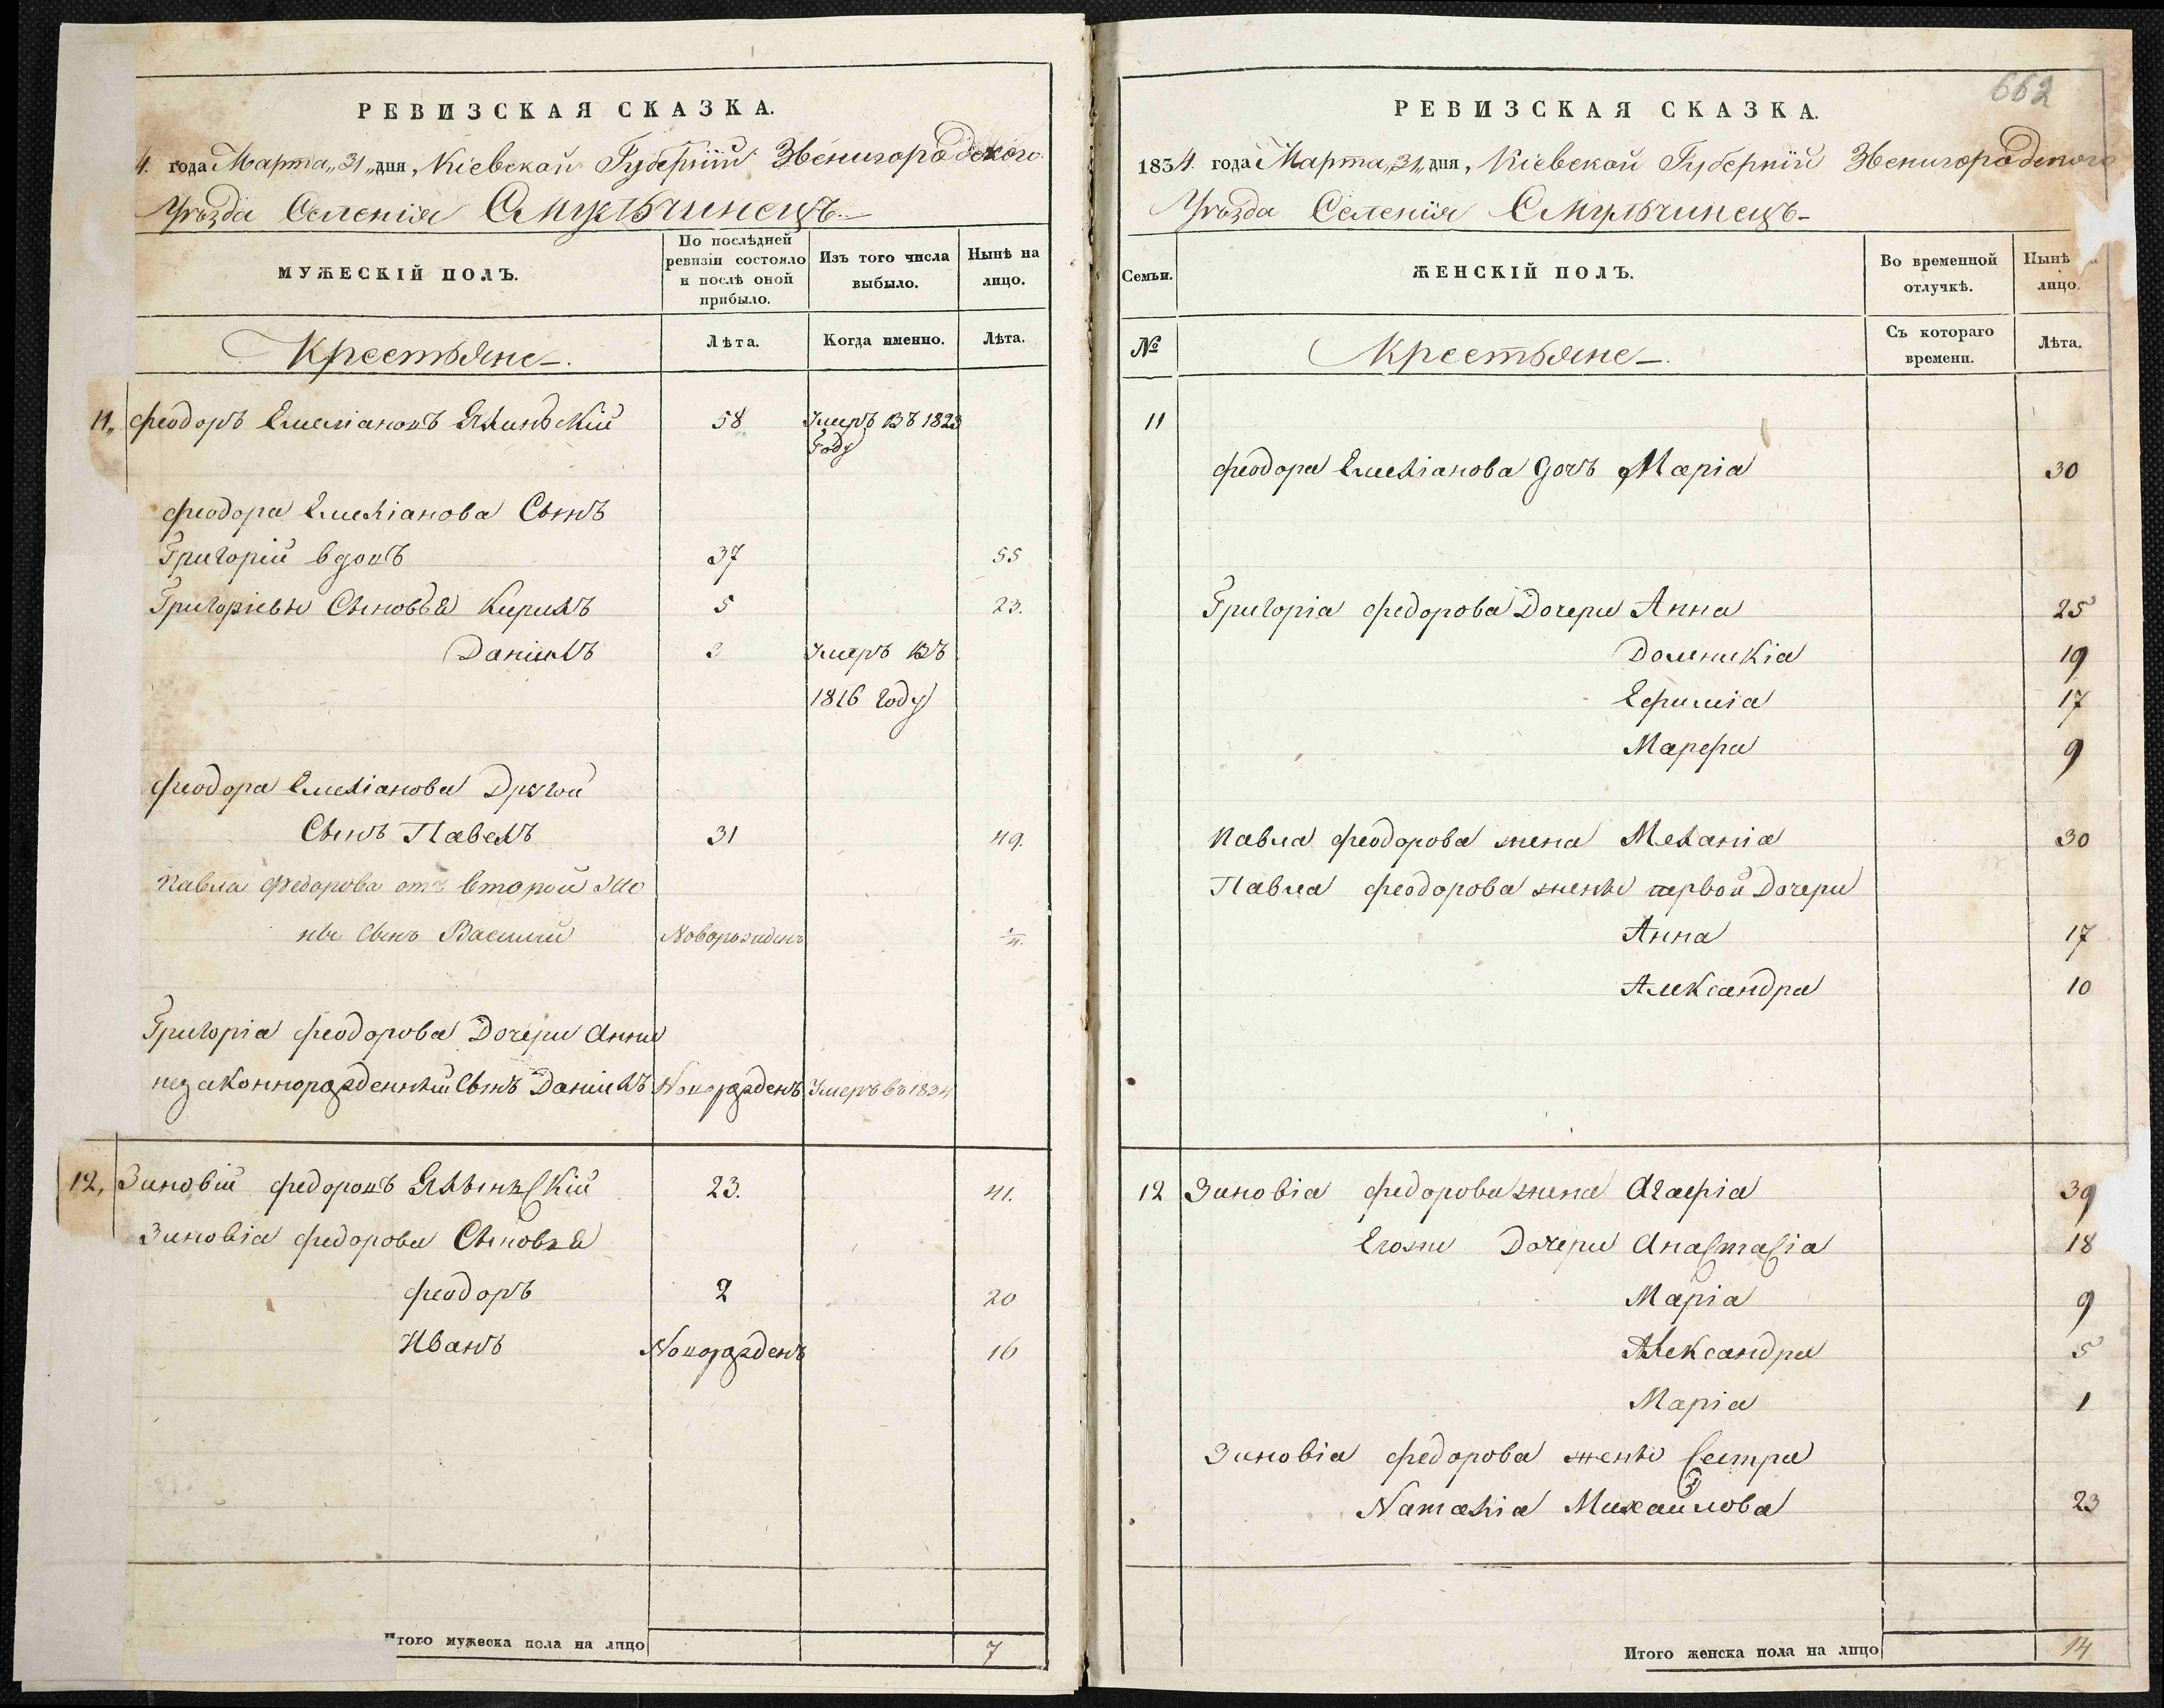 РЕВИЗСКАЯ СКАЗКА.
4. года Марта „31„ дня, Кіевской Губерніи Звенигородского
Уѣзда Селенія Смульчинецъ.
МУЖЕСКІЙ ПОЛЪ.
По послѣдней ревизіи состояло и послѣ оной прибыло.
Изъ того числа выбыло.
Нынѣ на лицо.
Крестьяне
Лѣта.
Когда именно.
Лѣта.
11. Феодоръ Емеліановъ 58 Умеръ въ 1823
Году
Феодора Емеліанова Сынъ
Григорій вдовъ 37 55
Григоріевы Сыновья Кирилъ 5 23.
Даніилъ 3 Умеръ въ
1816 Году
Феодора Емеліанова Другой
Сынъ Павелъ 31 49.
Павла Федорова отъ второй же
ны Сынъ Василий Новорожденъ 1/4.
Григоріа Феодорова Дочери Анны
незаконнорожденный Сынъ Даніилъ Новорожденъ Умеръ въ 1834
12, Зиновій Федоровъ 23. 41.
Зиновіа Федорова Сыновья
Феодоръ 2 20
Иванъ Новорожденъ 16
Итого мужеска пола на лицо 7
662
РЕВИЗСКАЯ СКАЗКА.
1834. года Марта „31„ дня, Кіевской Губерніи Звенигородского
Уѣзда Селенія Смульчинецъ
Семьи.
ЖЕНСКІЙ ПОЛЪ.
Во временной отлучкѣ.
Нынѣ лицо.
№
Крестьяне
Съ котораго времени.
Лѣта.
11
Феодора Емеліанова дочь Маріа 30
Григоріа Федорова Дочери Анна 25
Доминикіа 19
Ефиміа 17
Марфа 9
Павла Феодорова жена Меланіа 30
Павла Феодорова жены первой Дочери
Анна 17
Александра 10
12 Зиновіа Федорова жена Агафіа 39
Егоже Дочери Анастасіа 18
Маріа 9
Александра 5
Маріа 1
Зиновіа Федорова жены Сестра
Наталіа Михайлова 23
Итого женска пола на лицо 14